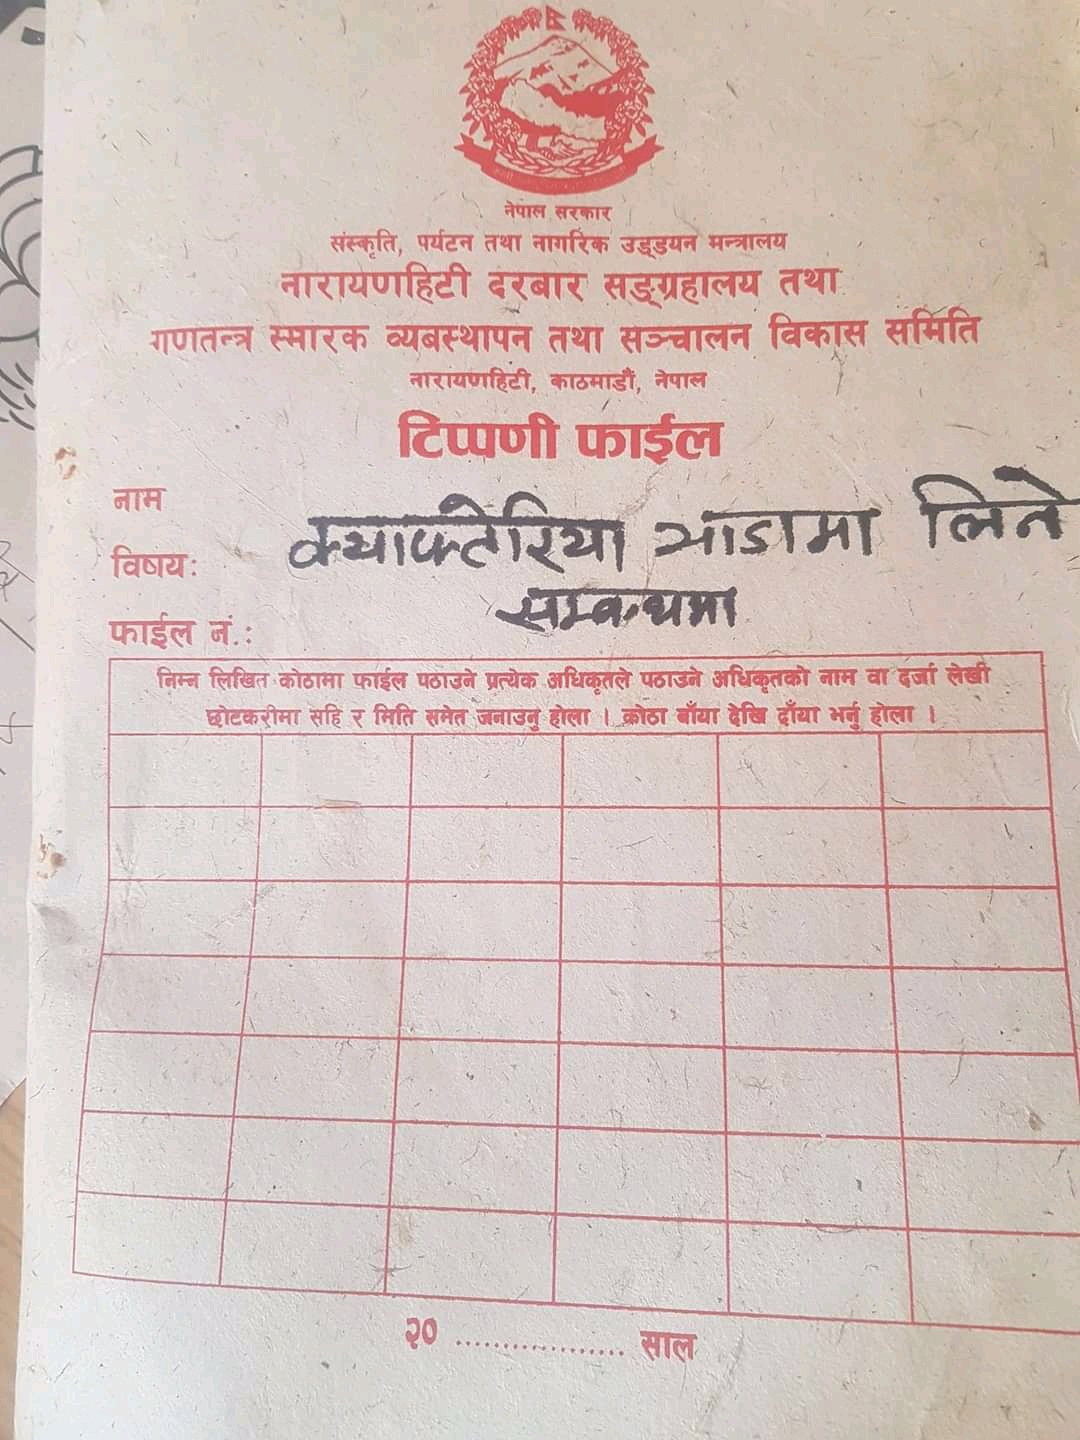 नेपाल सरकार
संस्कृति, पर्यटन तथा नागरिक उड्डयन मन्त्रालय
नारायणहिटी दरबार सङ्ग्रहालय तथा
गणतन्त्र स्मारक व्यबस्थापन तथा सञ्चालन विकास समिति
नारायणहिटी, काठमाडौं, नेपाल
टिप्पणी फाईल
नाम
क्याफ्टेरिया भाडामा लिने
विषय:
सम्बन्धमा
फाईल नं.:
निम्न लिखित कोठामा फाईल पठाउने प्रत्येक अधिकृतले पठाउने अधिकृतको नाम वा दर्जा लेखी
छोटकरीमा सहि र मिति समेत जनाउनु होला । कोठा बाँया देखि दाँया भर्नु होला ।
२० .................. साल